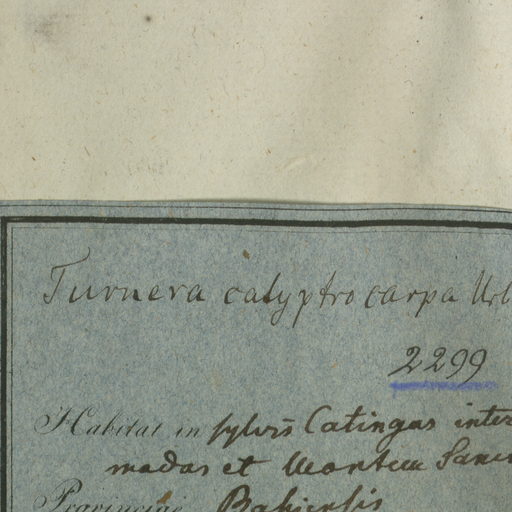 Turnera calyptrocarpa Urb
2299
Habitat in sylvis Catingas inter
madas et Montem Sanc
Provinciae Bahiensis